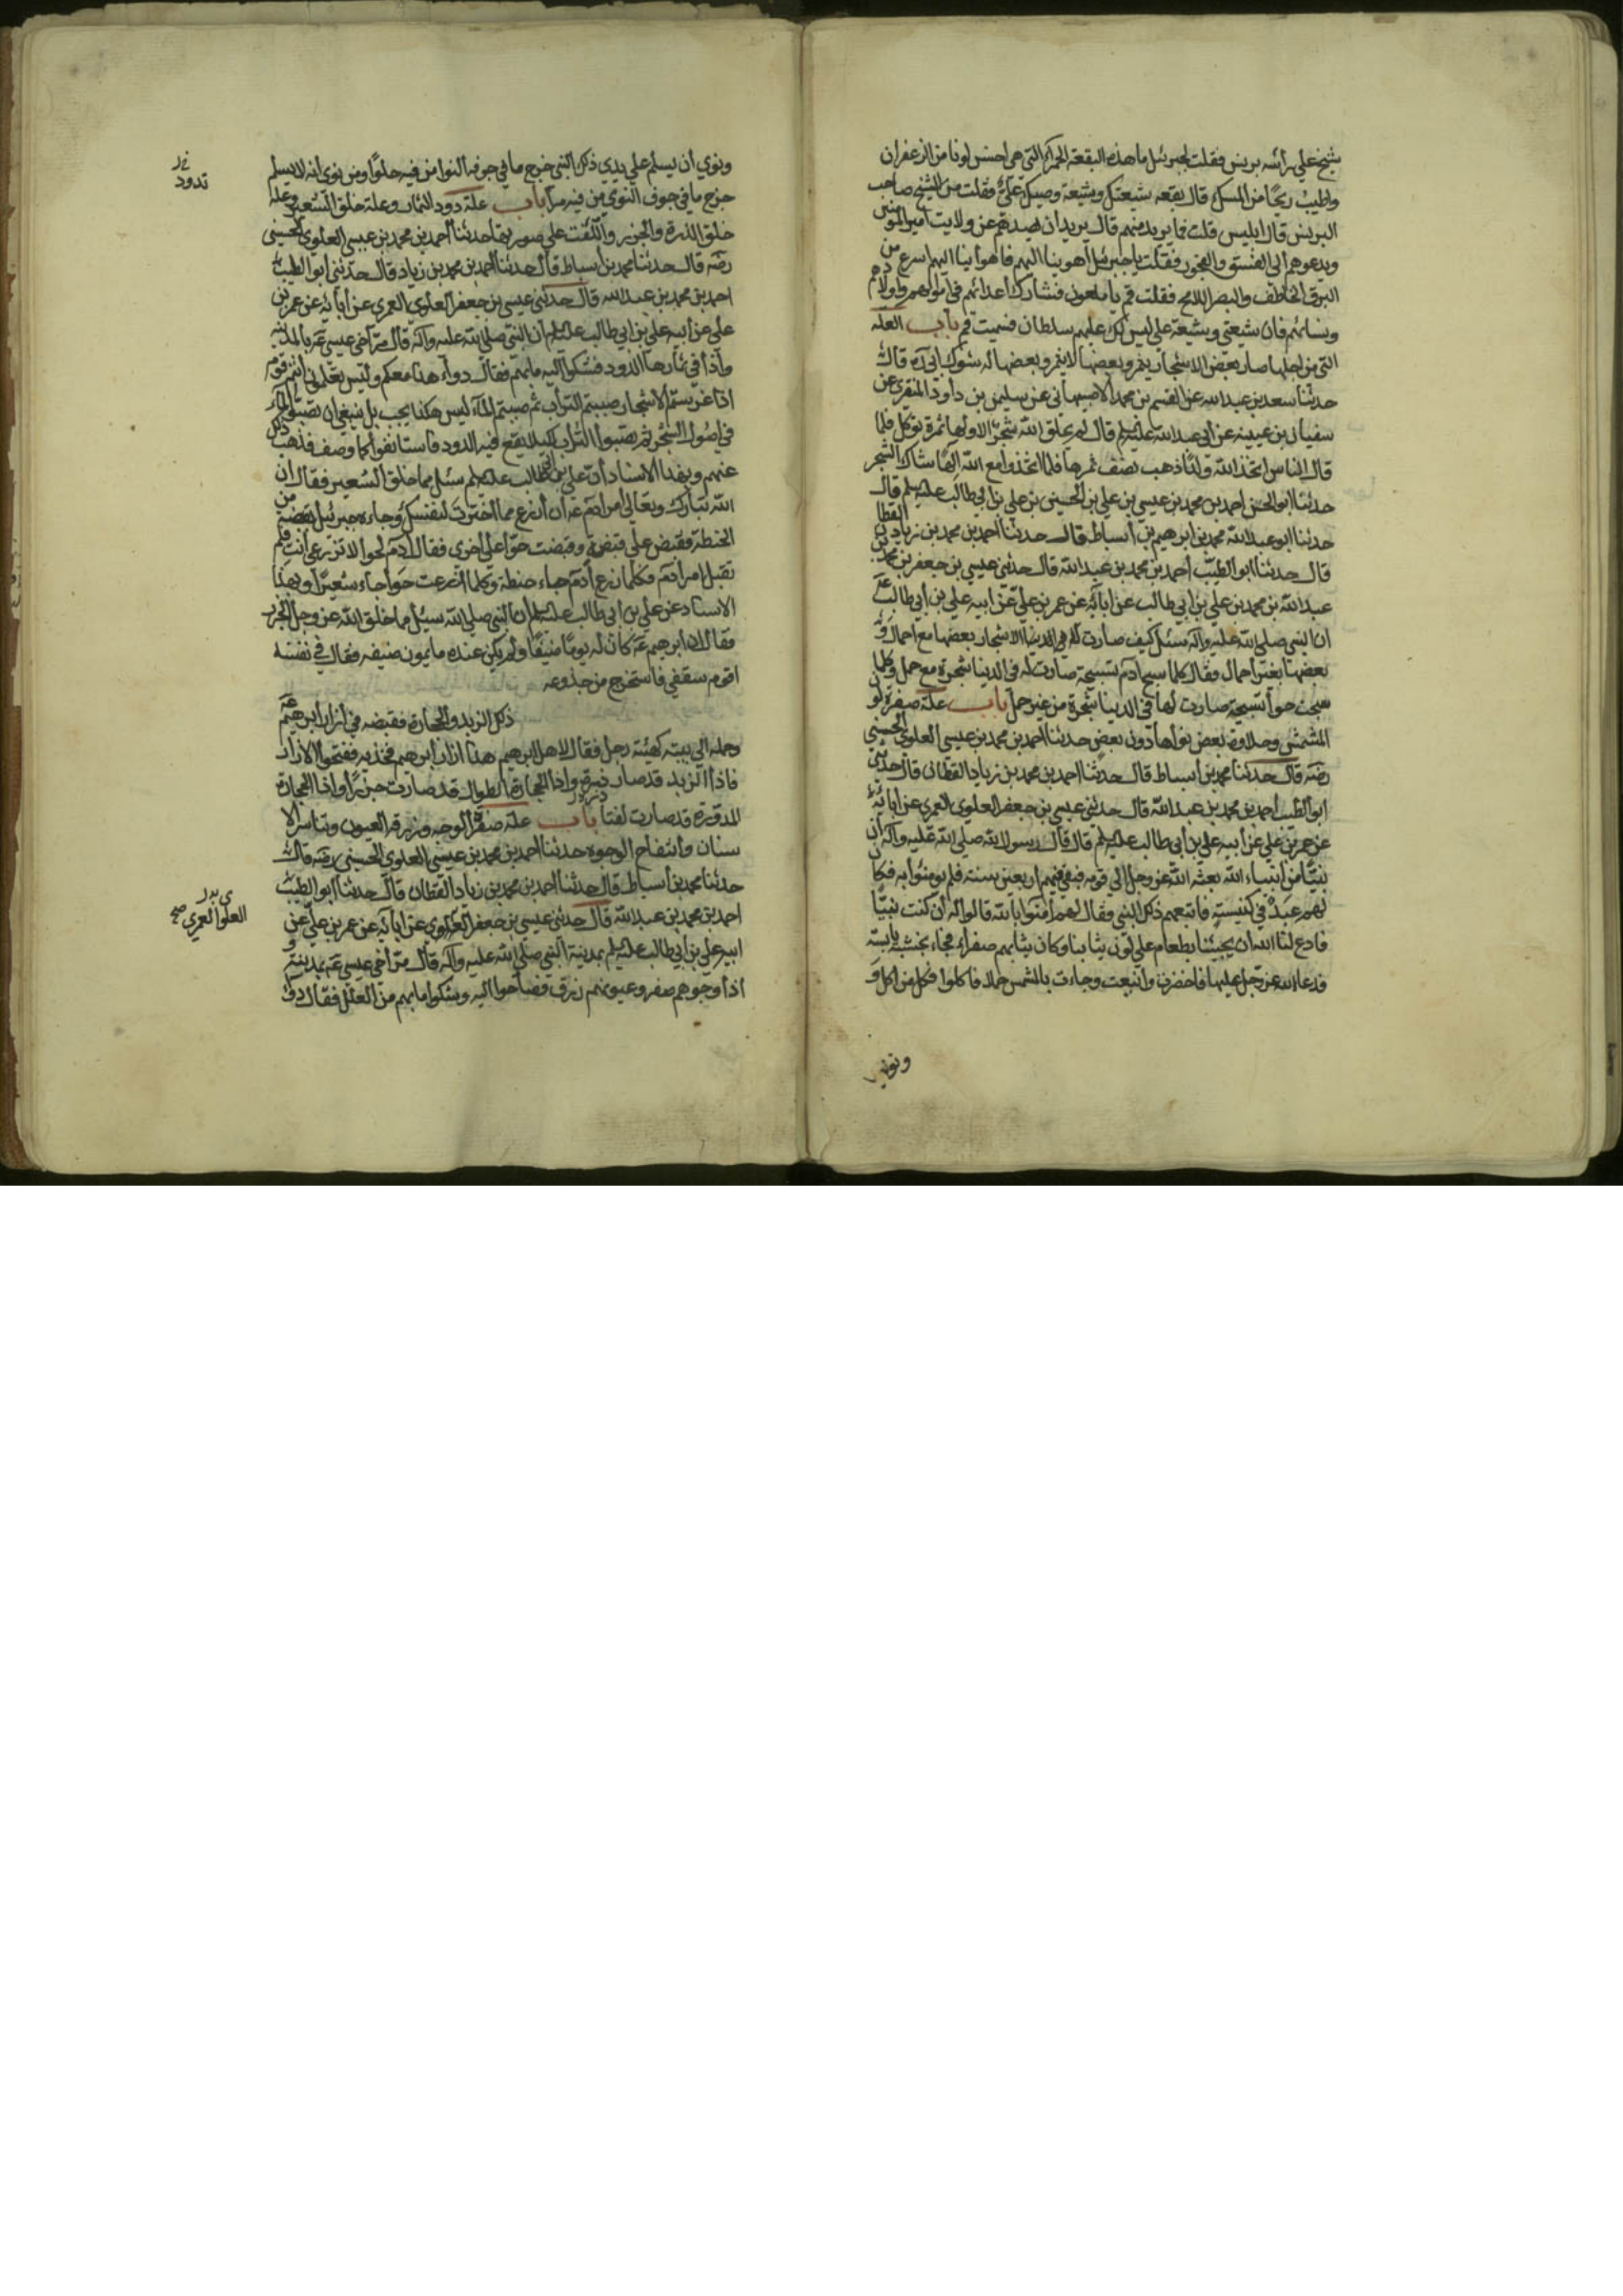 شيخ علي رأسه برنس فقلت لجبرئيل ما هذه البقعة الحمراء التي هي احسن لونا من الزعفران
واطيب ريحًا من المسك قال بقعه شيعتك وشيعة وصيك علي فقلت من الشيخ صاحب
البرنس قال ابليس قلت فما يريد منهم قال يريد ان يصدهم عن ولايت امير المومنين
ويدعوهم الي الفسق والفجور فقلت يا جبرئيل أهو بنا اليهم فاهوأ بنا اليهم اسرع من
البرق الخاطف والبصر اللامح فقلت قم يا ملعون فشارك أعدائهم في اموالهم واولادهم
ونسائهم فان شيعتي وشيعة علي ليس لك عليهم سلطان فسميت قم باب العله
التي من اجلها صار بعض الاشجار يثمر وبعضها لا يثمر وبعضها له شوك ابي ره قال
حدثنا سعد بن عبد الله عن القسم بن محمد الاصبهاني عن سليمن بن داود المنقري عن
سفيان بن عيينه عن ابي عبد الله عليه السلم قال لم يخلق الله شجرة الا ولها ثمرة توكل فلما
قال الناس اتخذ الله ولدًا ذهب نصف ثمرها فلما اتخذوا مع الله الهًا شاك الشجر
حدثنا ابو الحسن احمد بن محمد بن عيسي بن علي بن الحسين بن علي بن ابي طالب عليه السلم قال
حدثنا ابو عبد الله محمد بن ابرهيم بن أسباط قال حدثنا احمد بن محمد بن زياد القطان
قال حدثنا ابو الطيب أحمد بن محمد بن عبد الله قال حدثني عيسي بن جعفر بن محمد بن
عبد الله بن محمد بن علي بن ابي طالب عن ابآئه عن عمر بن علي عن ابيه علي بن أبي طالب ع
ان النبي صلي الله عليه وآله سئل كيف صارت الاشجار بعضها مع احمال و
بعضها بغير احمال فقال كلما سبح ادم تسبيحة صارت له في الدنيا شجرة مع حمل وكلما
سبحت حوا تسبيحة صارت لها في الدنيا شجرة من غير حمل باب علة صفرة لون
المشمش وحلاوة بعض نواها دون بعض حدثنا احمد بن محمد بن عيسي العلوي الحسيني
رضه قال حدثنا محمد بن أسباط قال حدثنا احمد بن محمد بن زياد القطان قال حدثني
ابو الطيب احمد بن محمد بن عبد الله قال حدثني عيسي بن جعفر العلوي العمري عن ابائه
عن عمر بن علي عن أبيه علي بن أبي طالب عليه السلم قال قال رسول الله صلي الله عليه وآله أن
نبيًّا من أنبياء الله بعثه الله عز وجل الي قومه فبقي فيهم اربعين سنة فلم يومنوا به فكان
لهم عيد في كنيسته فاتبعهم ذلك النبي وقال لهم أمنوا بالله قالوا له أن كنت نبيًا
فادع لنا الله ان يجيئنا بطعام علي لون ثيابنا وكان ثيابهم صفراء فجاء بخشبة يابسة
فدعا الله عز وجل عليها فاخضرت وأينعت وجاءت بالمشمش حملا فاكلوا فكل من اكل و
ونوي
ونوي أن يسلم علي يدي ذلك النبي خرج ما في جوف النوا من فيه حلوًا ومن نوي انه لا يسلم
خرج ما في جوف النوي من فيه مرا باب علة دود الثمار وعلة خلق الشعير وعلة
خلق الذرة والجزر واللفت علي صورتهما حدثنا أحمد بن محمد بن عيسي العلوي الحسيني
رضه قال حدثنا محمد بن أسباط قال حدثنا أحمد بن محمد بن زياد قال حدثني ابو الطيب
احمد بن محمد بن عبد الله قال حدثني عيسي بن جعفر العلوي العمري عن أبائه عن عمر بن
علي عن أبيه علي بن ابي طالب عليه السلم ان النبي صلي الله عليه وآله قال مر أخي عيسي ع بالمدينه
وأذا في ثمارها الدود فشكوا اليه ما بهم فقال دوآء هذا معكم وليس تعلمون أنتم قوم
اذا غرستم الاشجار صببتم التراب ثم صببتم المآء ليس هكذا يجب بل ينبغي ان تصبوا المآء
في أصول الشجر ثم تصبوا التراب لكيلا يقع فيه الدود فاستانفوا كما وصف فذهب ذلك
عنهم وبهذا الاسناد أن علي بن ابي طالب عليه السلم سئل مما خلق الشعير فقال ان
الله تبارك وتعالي أمر آدم ع أن أزرع مما أخترت لنفسك وجاءه جبرئيل بقبضة من
الحنطة فقبض علي قبضة وقبضت حوا علي اخري فقال أدم لحوا لا تزرعي أنت فلم
تقبل امر أدم فكلما زرع أدم جاء حنطة وكلما ازرعت حوا جاء شعيرًا وبهذا
الاسناد عن علي بن ابي طالب عليه السلم أن النبي صلي الله سئل مما خلق الله عز وجل الجزر
فقال ان ابرهيم ع كان له يومًا ضيفًا ولم يكن عنده ما يمون ضيفه فقال في نفسه
اقوم سقفي فاستخرج من جذوعه
ذلك الزبد والحجارة فقبضه في أزار أبرهيم ع
وحمله الي بيته كهيئة رجل فقال لاهل ابرهيم هذا ازار ابرهيم فخذيه ففتحوا الازار
فاذا الزبد قد صار ذرة واذا الحجارة الطوال قد صارت جزرًا واذا الحجارة
المدورة قد صارت لفتا باب علة صفرة الوجه وزرقة العيون وتناثر الا
سنان وأنتفاخ الوجوه حدثنا احمد بن محمد بن عيسي العلوي الحسيني رضه قال
حدثنا محمد بن أسباط قال حدثنا احمد بن محمد بن زياد القطان قال حدثنا ابو الطيب
احمد بن محمد بن عبد الله قال حدثني عيسي بن جعفر العلوي عن ابائه عن عمر بن علي عن
ابيه علي بن ابي طالب عليه السلم بمدينة النبي صلي الله عليه وآله قال مر أخي عيسي ع بمدينة و
اذا وجوههم صفر وعيونهم زرق فصاحوا اليه وشكوا ما بهم من العلل فقال دو
تدود
العلوي العمري صح